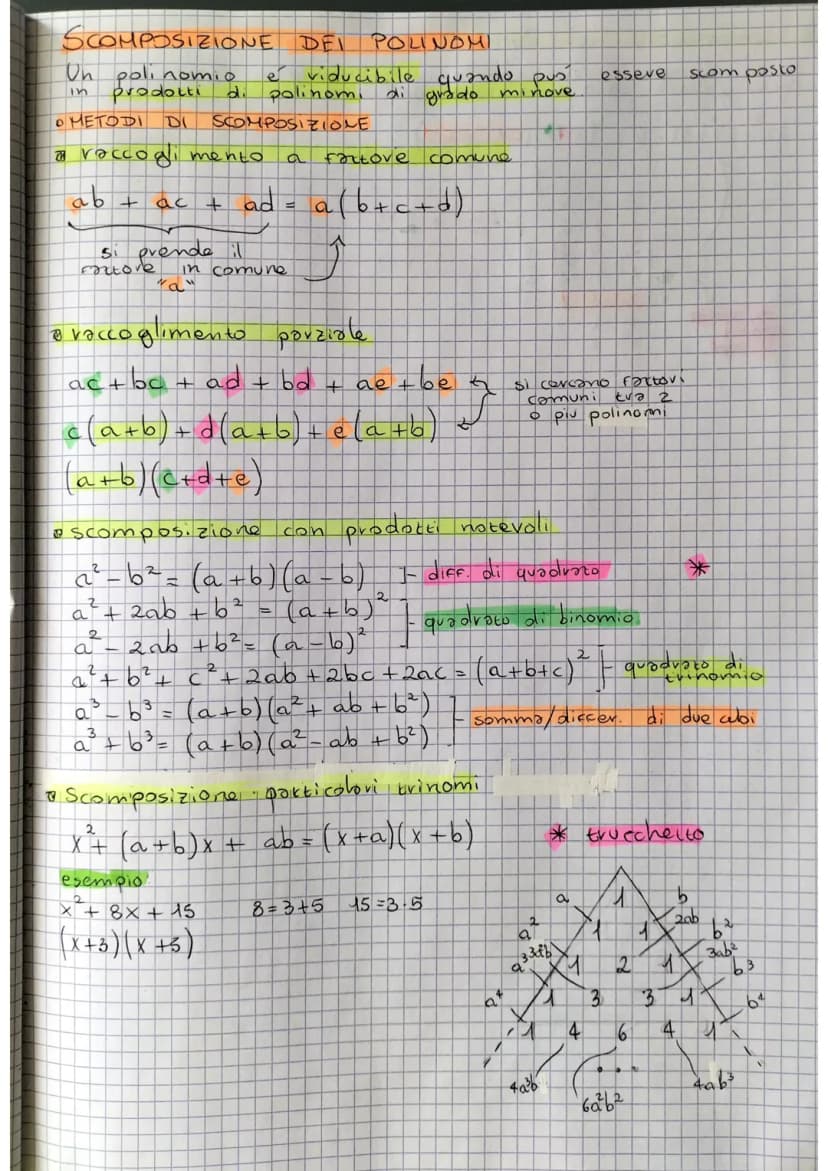 SCOMPOSIZIONE DEI POLINOMI
Un polinomio é riducibile quando può essere scomposto
in prodotti di polinomi di grado minore.
METODI DI SCOMPOSIZIONE
raccoglimento a fattore comune
ab + ac + ad = a(b+c+d)
si prende il
fattore in comune
"a"
raccoglimento parziale
ac + bc + ad + bd + ae + be
c(a+b) + d(a+b) + e(a+b)
(a+b)(c+d+e)
si cercano fattori
comuni tra 2
o più polinomi
scomposizione con prodotti notevoli
a² - b² = (a+b)(a-b) diff. di quadrato *
a² + 2ab + b² = (a+b)²
a² - 2ab + b² = (a-b)²
quadrato di binomio
a² + b² + c² + 2ab + 2bc + 2ac = (a+b+c)² quadrato di
trinomio
a³ - b³ = (a+b)(a² + ab + b²)
a³ + b³ = (a+b)(a² - ab + b²)
somma/differ. di due cubi
Scomposizione particolari trinomi
x² + (a+b)x + ab = (x+a)(x+b)
esempio
x² + 8x + 15 8=3+5 15=3·5
(x+3)(x+5)
* trucchetto
1
a b
1 1
a² 2ab b²
1 2 1
a³ 3ab² b³
1 3 3 1
a⁴ b⁴
1 4 6 4 1
4a³b 6a²b² 4ab³